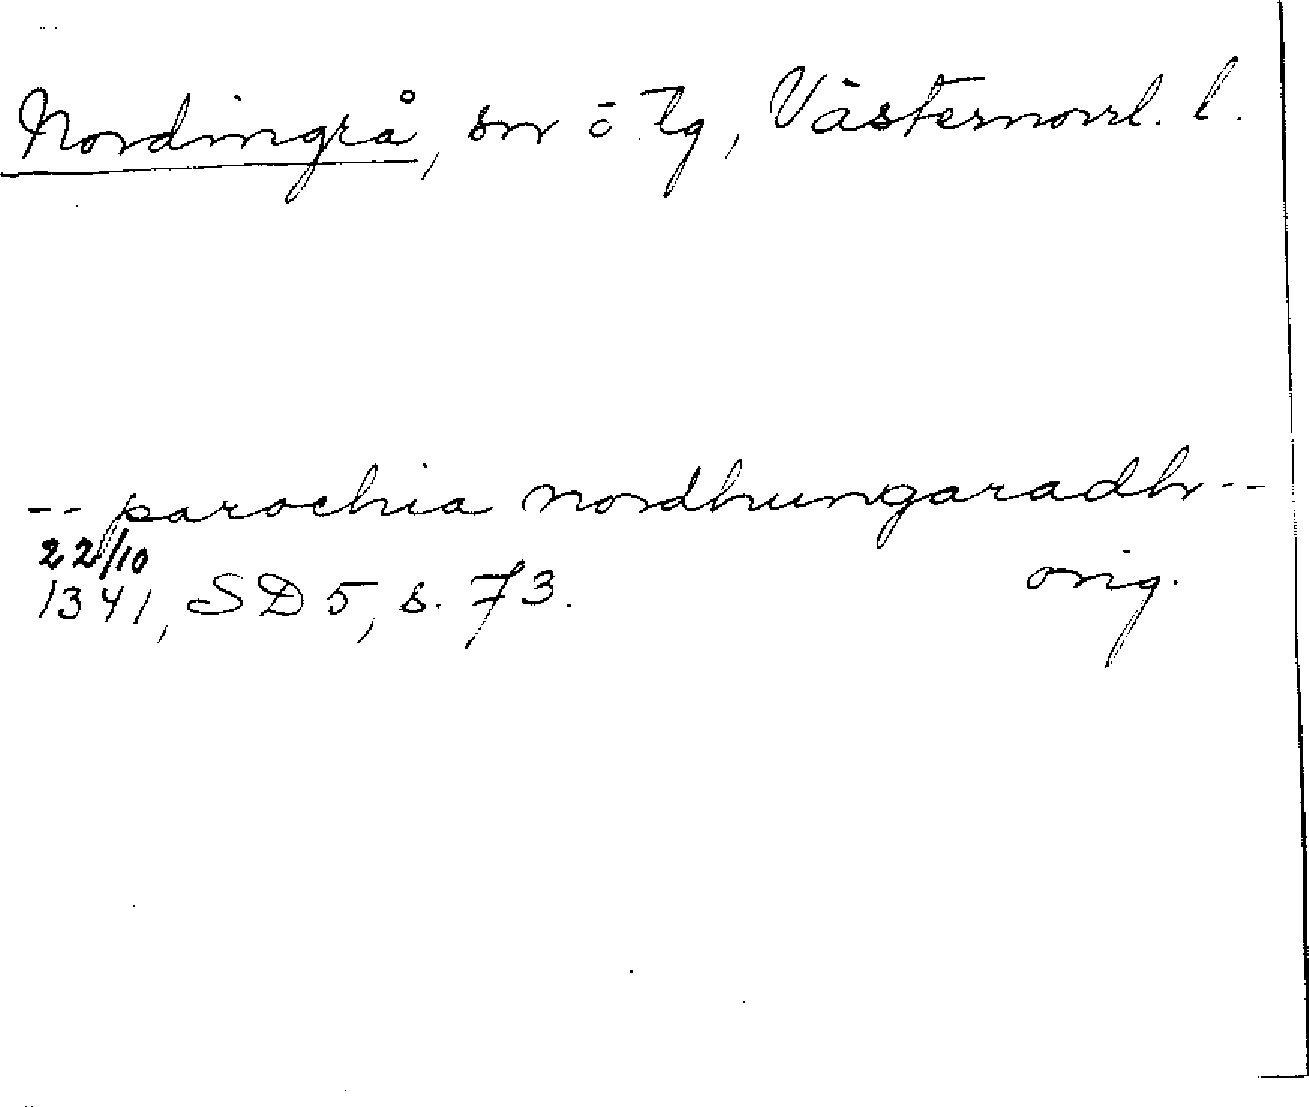 Nordingrå, sn o. tg, Västernorrl. l.
-- parochia nordhungaradh --
22/10
1341, SD 5, s. 73. orig.